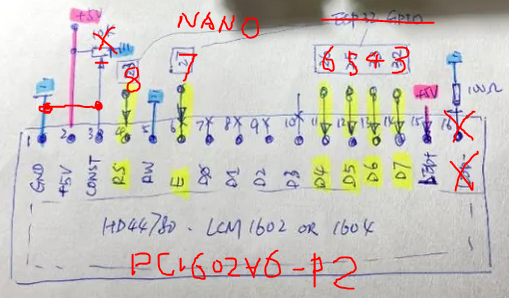 NANO
+5V
8
7
6 5 4 3
+5V
100Ω
1 2 3 4 5 6 7 8 9 10 11 12 13 14 15 16
GND +5V CONST RS RW E D0 D1 D2 D3 D4 D5 D6 D7
HD44780 - LCM1602 OR 1604
PC1602V6-P2